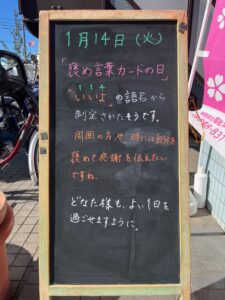 1月14日（火）
「褒め言葉カードの日」
1 1 4
"いいよ"の語呂から
制定されたそうです。
周囲の方や 時には自分を
褒めて感謝を伝えたい
ですね。
どなた様も、よい1日を
過ごせますように。